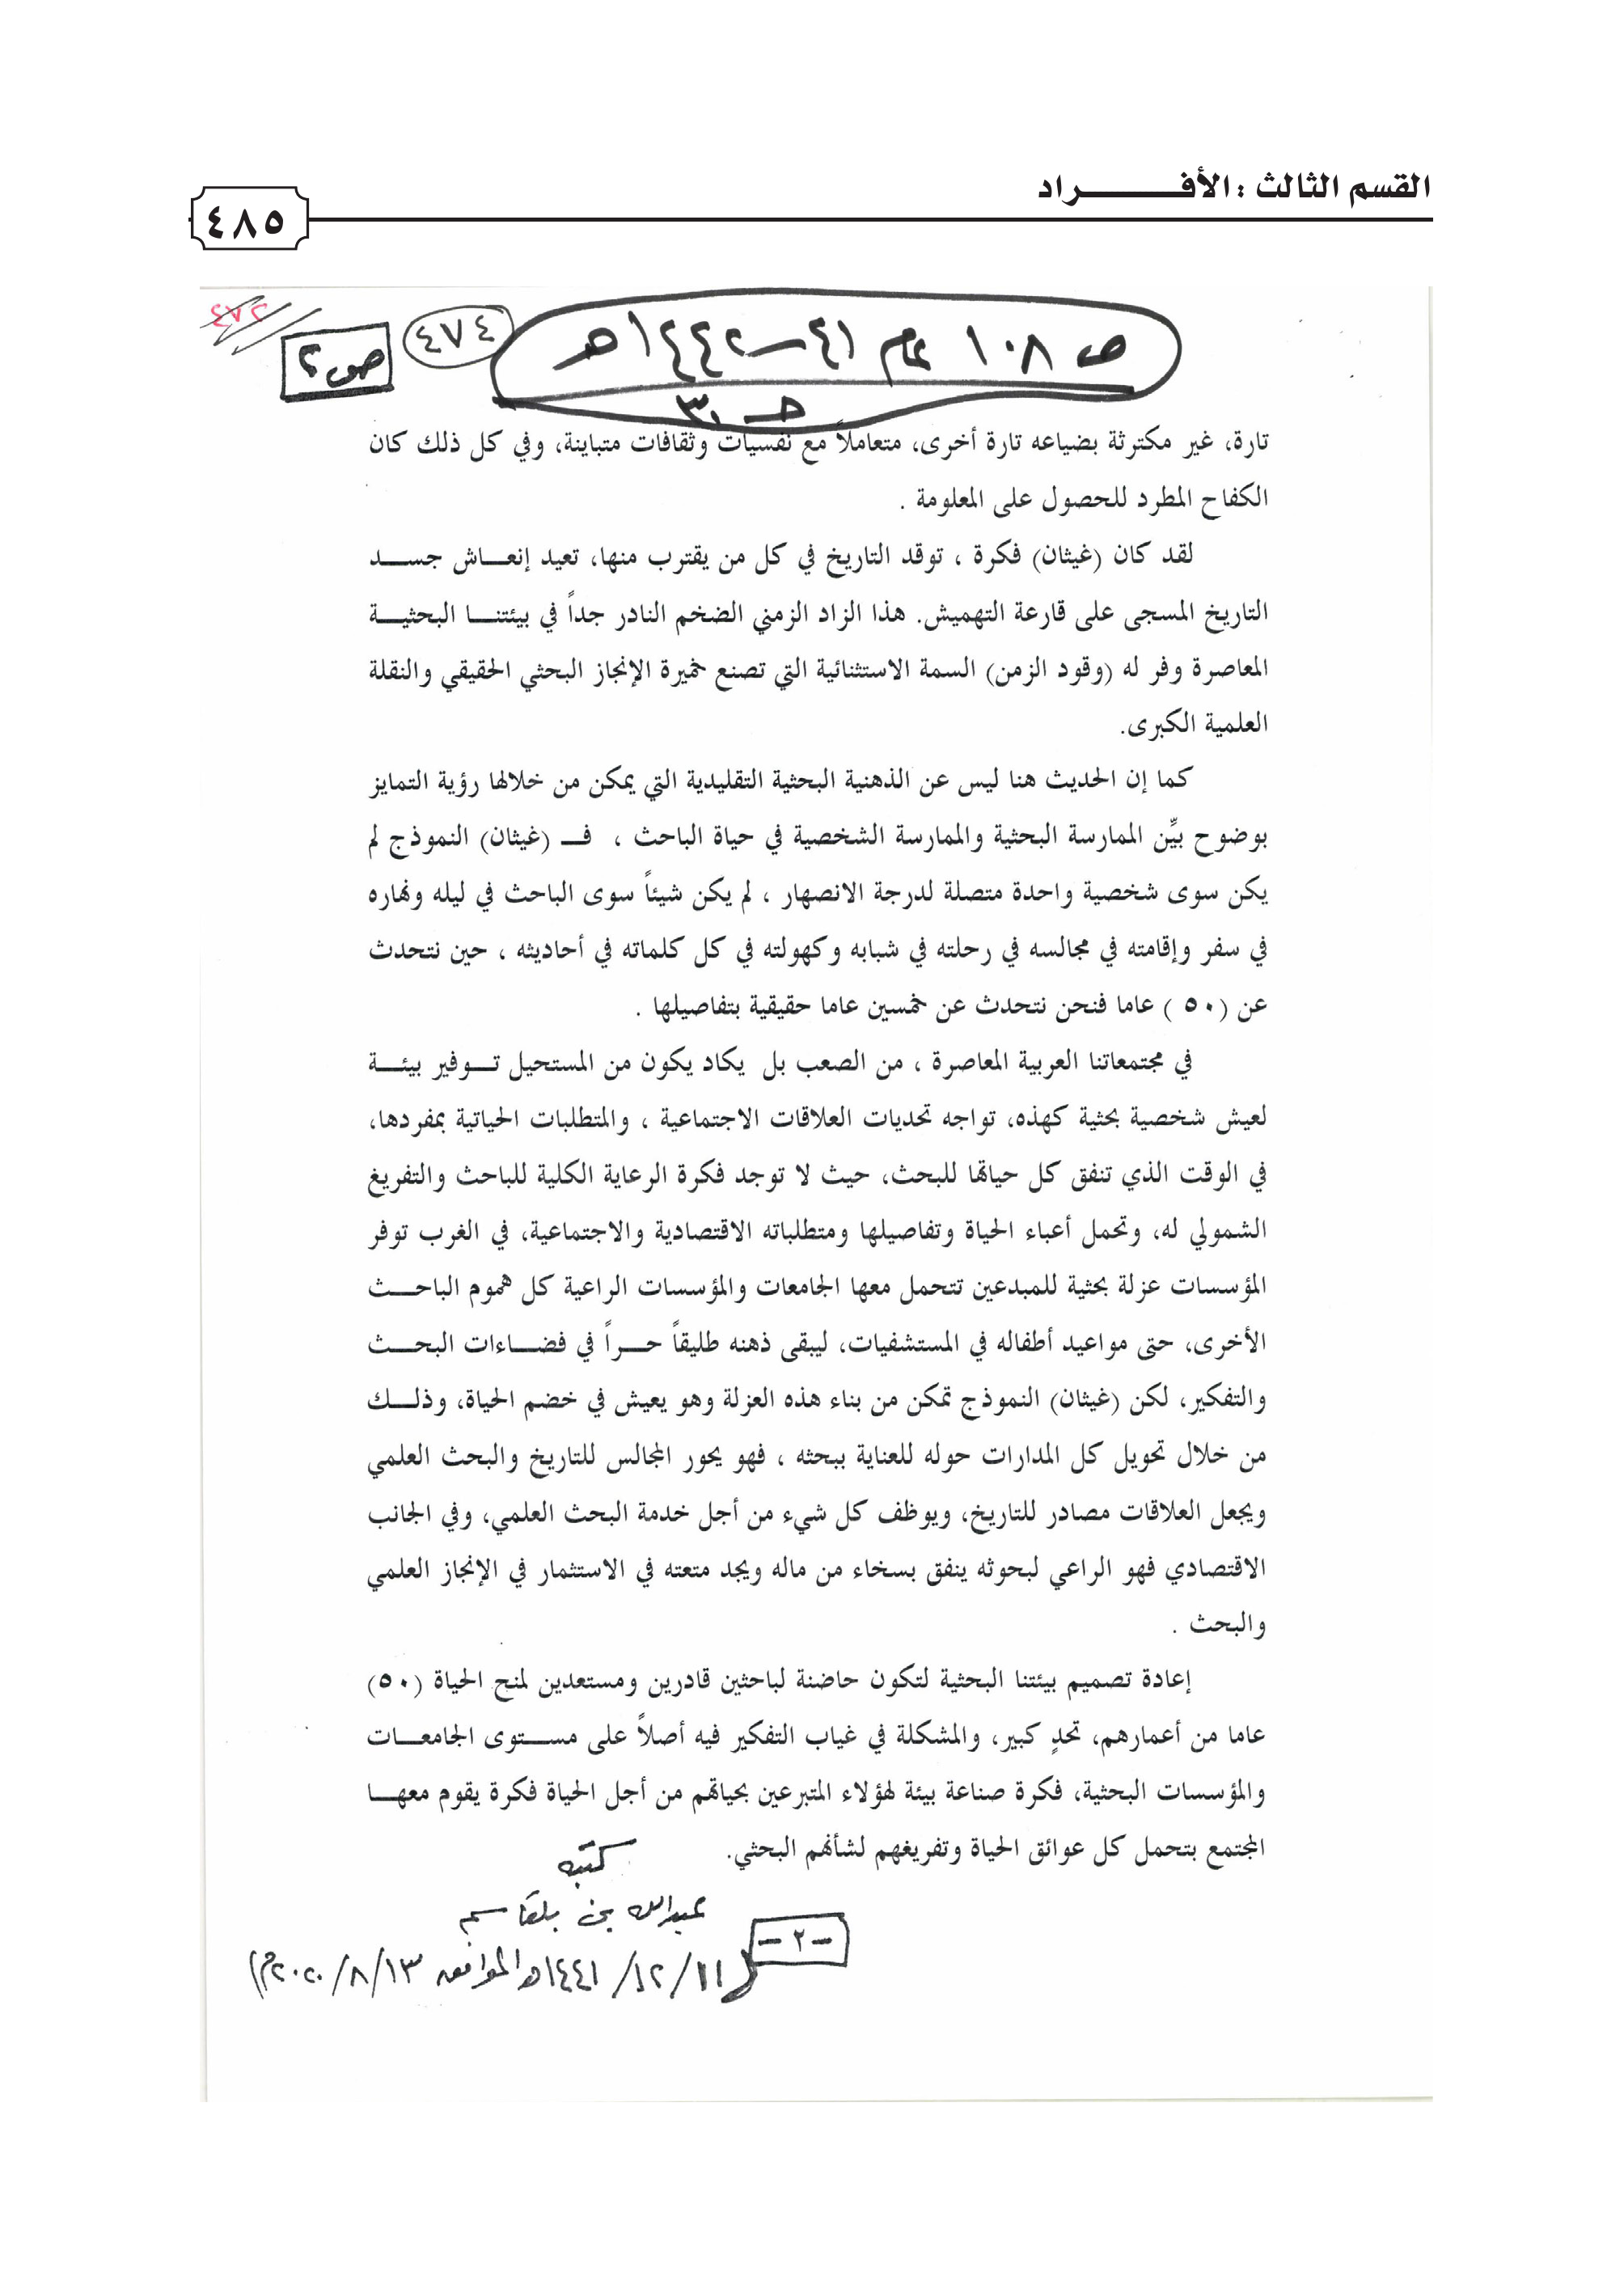 القسم الثالث : الأفـــــــــراد
٤٨٥
٤٧٢
ص٢
٤٧٤
ص ١٠٨ عام ٤١-١٤٤٢هـ
تارة، غير مكترثة بضياعه تارة أخرى، متعاملاً مع نفسيات وثقافات متباينة، وفي كل ذلك كان
الكفاح المطرد للحصول على المعلومة .
لقد كان (غيثان) فكرة ، توقد التاريخ في كل من يقترب منها، تعيد إنعـــاش جســـد
التاريخ المسجى على قارعة التهميش. هذا الزاد الزمني الضخم النادر جداً في بيئتنـــا البحثيـــة
المعاصرة وفر له (وقود الزمن) السمة الاستثنائية التي تصنع خميرة الإنجاز البحثي الحقيقي والنقلة
العلمية الكبرى.
كما إن الحديث هنا ليس عن الذهنية البحثية التقليدية التي يمكن من خلالها رؤية التمايز
بوضوح بيِّن الممارسة البحثية والممارسة الشخصية في حياة الباحث ، فـــ (غيثان) النموذج لم
يكن سوى شخصية واحدة متصلة لدرجة الانصهار ، لم يكن شيئاً سوى الباحث في ليله ونهاره
في سفر وإقامته في مجالسه في رحلته في شبابه وكهولته في كل كلماته في أحاديثه ، حين نتحدث
عن (٥٠ ) عاما فنحن نتحدث عن خمسين عاما حقيقية بتفاصيلها .
في مجتمعاتنا العربية المعاصرة ، من الصعب بل يكاد يكون من المستحيل تـــوفير بيئـــة
لعيش شخصية بحثية كهذه، تواجه تحديات العلاقات الاجتماعية ، والمتطلبات الحياتية بمفردها،
في الوقت الذي تنفق كل حياتها للبحث، حيث لا توجد فكرة الرعاية الكلية للباحث والتفريغ
الشمولي له، وتحمل أعباء الحياة وتفاصيلها ومتطلباته الاقتصادية والاجتماعية، في الغرب توفر
المؤسسات عزلة بحثية للمبدعين تتحمل معها الجامعات والمؤسسات الراعية كل هموم الباحـــث
الأخرى، حتى مواعيد أطفاله في المستشفيات، ليبقى ذهنه طليقاً حـــراً في فضـــاءات البحـــث
والتفكير، لكن (غيثان) النموذج تمكن من بناء هذه العزلة وهو يعيش في خضم الحياة، وذلـــك
من خلال تحويل كل المدارات حوله للعناية ببحثه ، فهو يحور المجالس للتاريخ والبحث العلمي
ويجعل العلاقات مصادر للتاريخ، ويوظف كل شيء من أجل خدمة البحث العلمي، وفي الجانب
الاقتصادي فهو الراعي لبحوثه ينفق بسخاء من ماله ويجد متعته في الاستثمار في الإنجاز العلمي
والبحث .
إعادة تصميم بيئتنا البحثية لتكون حاضنة لباحثين قادرين ومستعدين لمنح الحياة (٥٠)
عاما من أعمارهم، تحدٍ كبير، والمشكلة في غياب التفكير فيه أصلاً على مســـتوى الجامعـــات
والمؤسسات البحثية، فكرة صناعة بيئة لهؤلاء المتبرعين بحياتهم من أجل الحياة فكرة يقوم معهـــا
المجتمع بتحمل كل عوائق الحياة وتفريغهم لشأنهم البحثي.
كتبه
عبدالله بن بلقاسم
-٢-
(١١/ ١٢/ ١٤٤١هـ الموافق ١٣/ ٨/ ٢٠٢٠م)